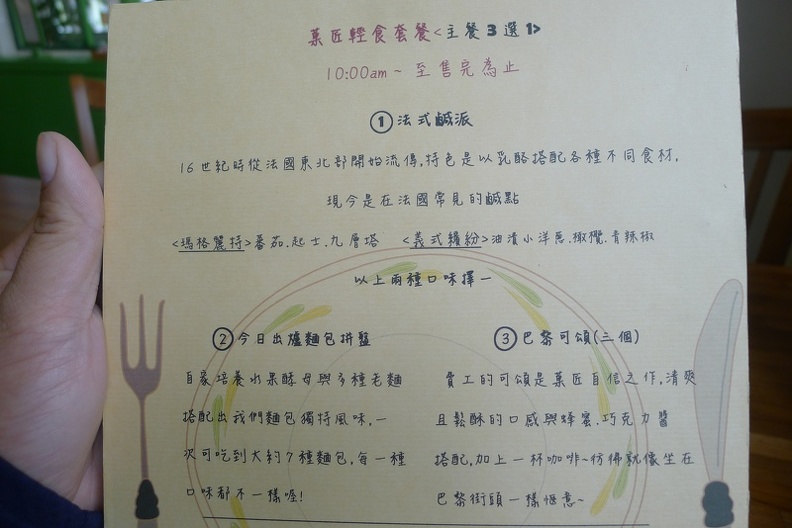 菓匠輕食套餐<主餐3選1>
10:00am ~ 至售完為止
① 法式鹹派
16世紀時從法國東北部開始流傳,特色是以乳酪搭配各種不同食材,
現今是在法國常見的鹹點
<瑪格麗特>蕃茄.起士.九層塔 <義式繽紛>油漬小洋蔥.橄欖.青辣椒
以上兩種口味擇一
② 今日出爐麵包拼盤
自家培養水果酵母與多種老麵
搭配出我們麵包獨特風味,一
次可吃到大約7種麵包,每一種
口味都不一樣喔!
③ 巴黎可頌(三個)
費工的可頌是菓匠自信之作,清爽
且鬆酥的口感與蜂蜜.巧克力醬
搭配,加上一杯咖啡~彷彿就像坐在
巴黎街頭一樣愜意~